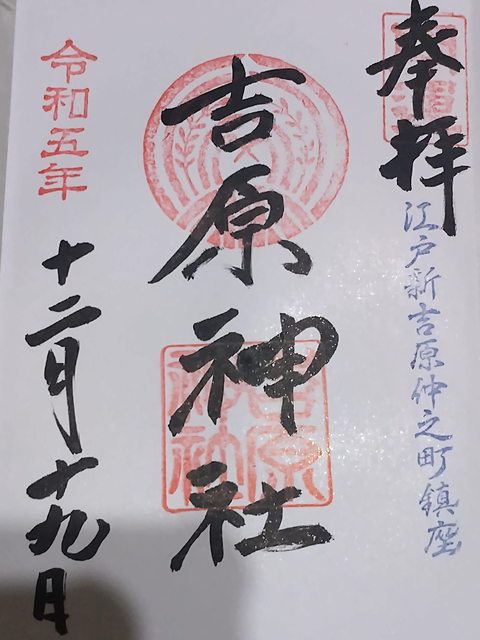 奉拝
江戸新吉原仲之町鎮座
吉原神社
吉原
神社
令和五年
十二月十九日